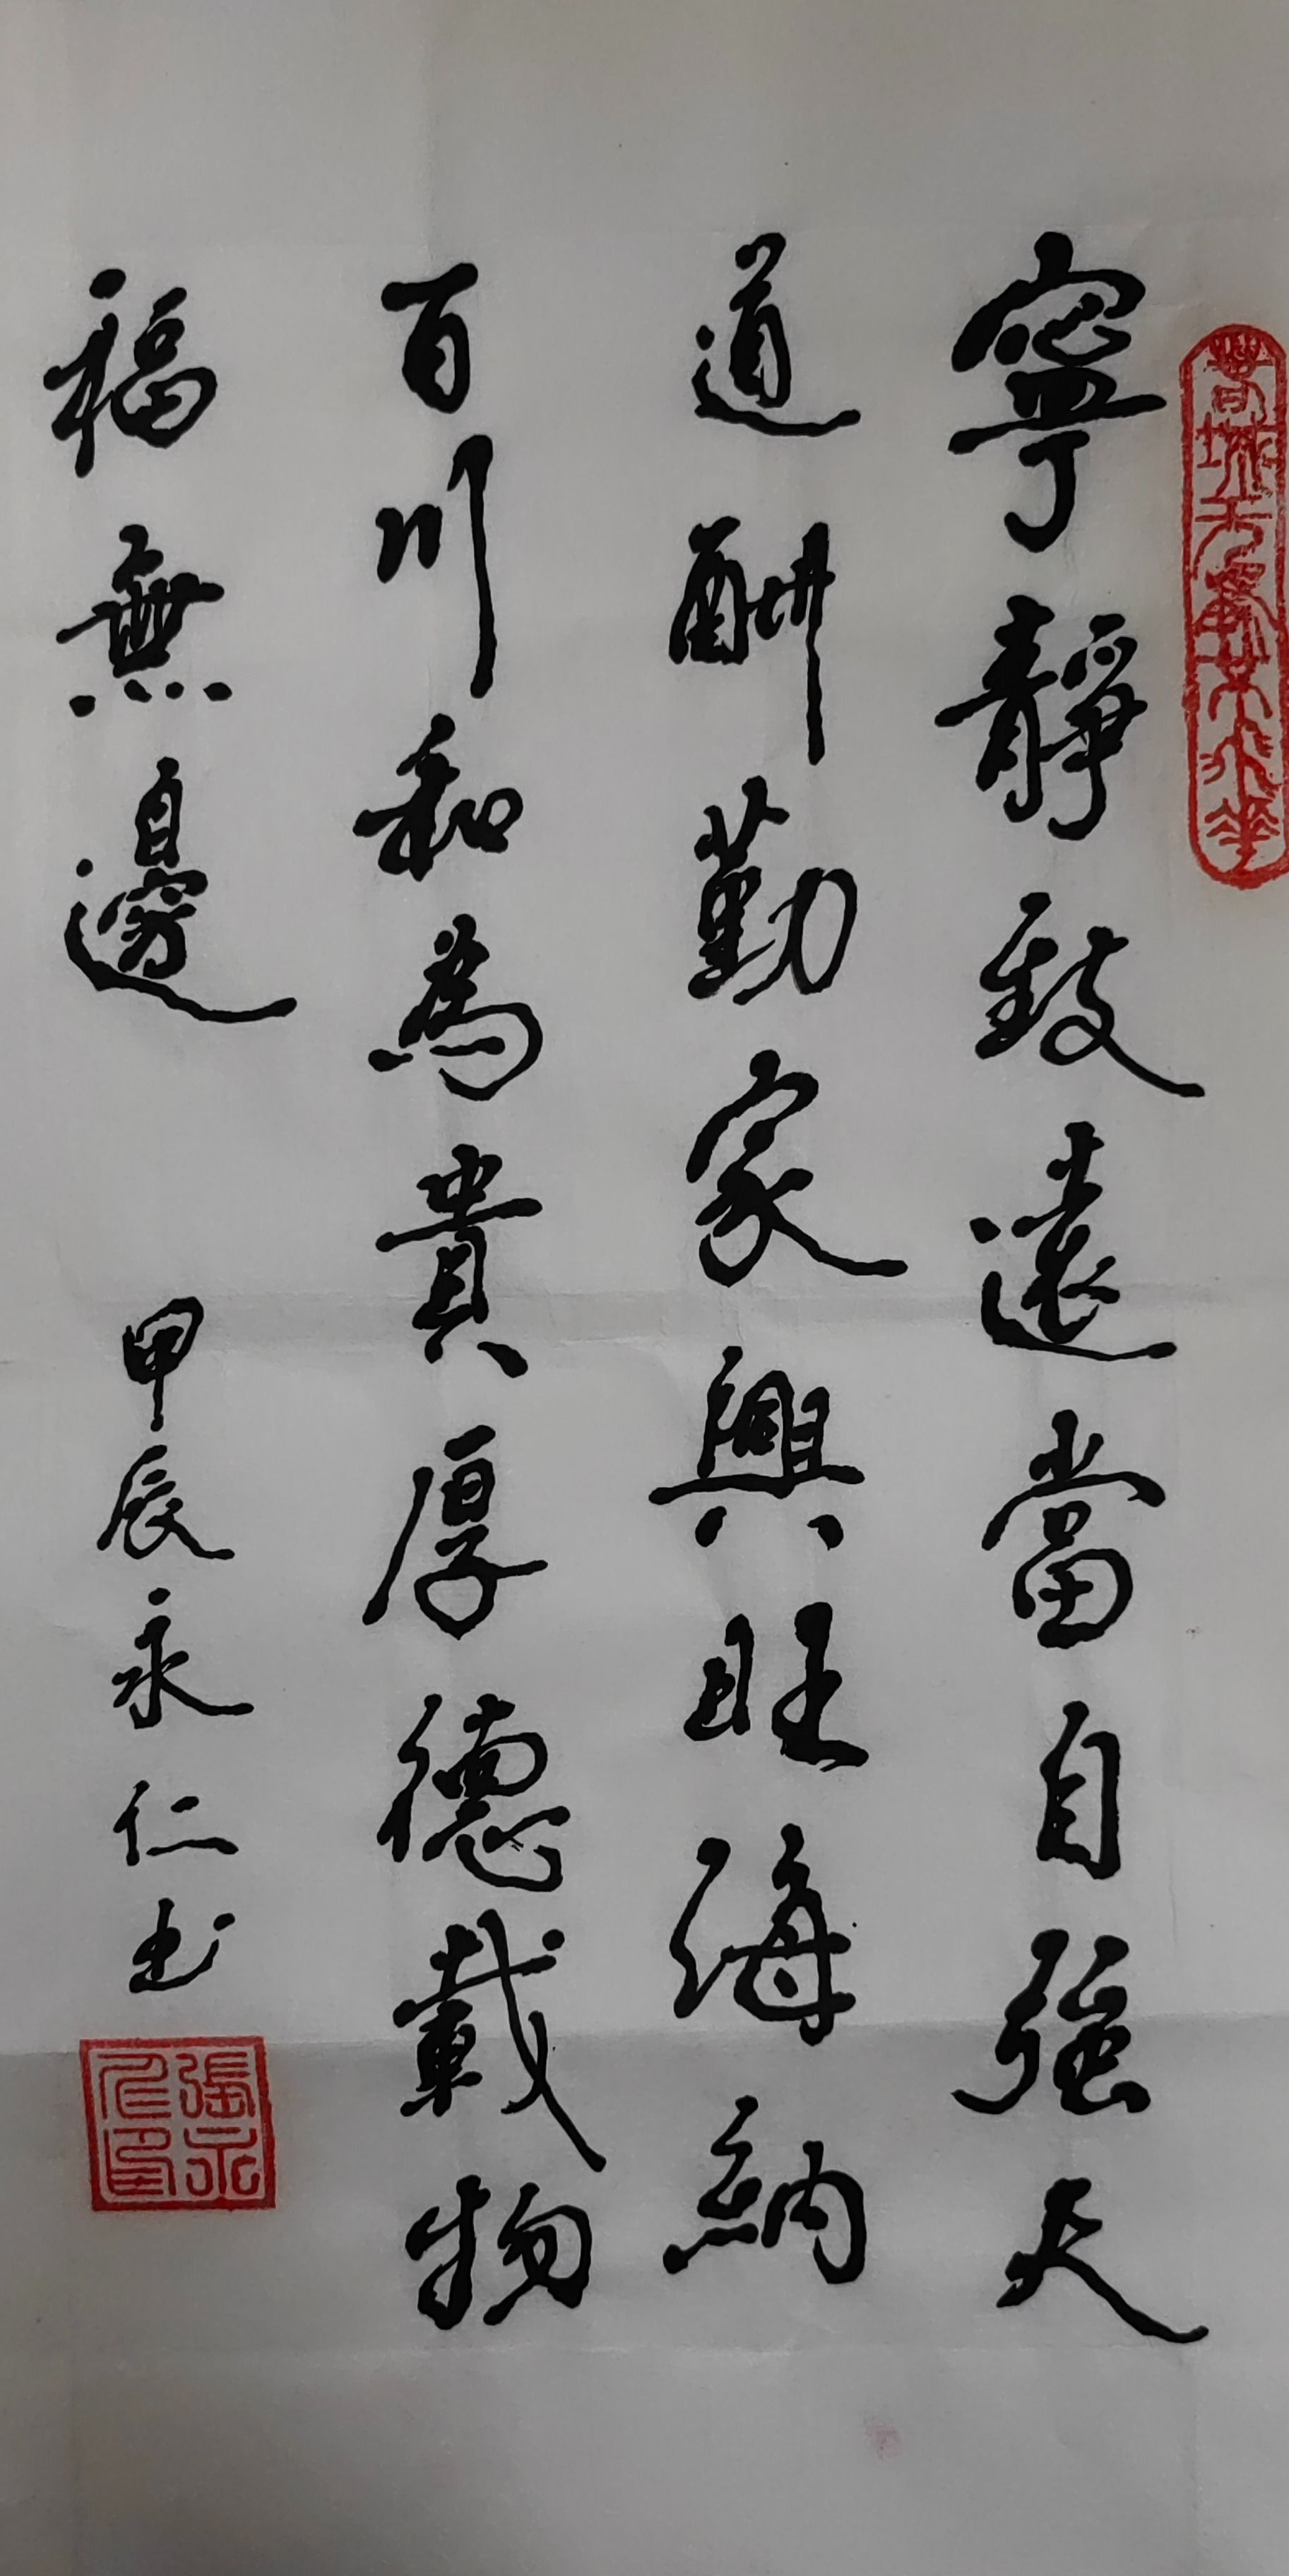 寧靜致遠當自強天
道酬勤家興旺海納
百川和為貴厚德載物
福無邊
甲辰永仁书
張永仁印